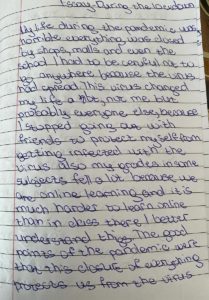 Essay During the lockdown
My life during the pandemic was
horrible everything were closed
by shops, malls and even the
school I had to be careful not to
go anywhere because the virus
had spread. This virus changed
my life a lot, not me but
probably everyone else, because
I stopped going out with
friends to protect my self from
getting infected with the
virus. Also my grades in some
subjects fell a lot because we
are online learning and it is
much harder to learn online
than in class there I better
understand things. The good
points of the pandemic were
that this closure of everything
protects us from the virus